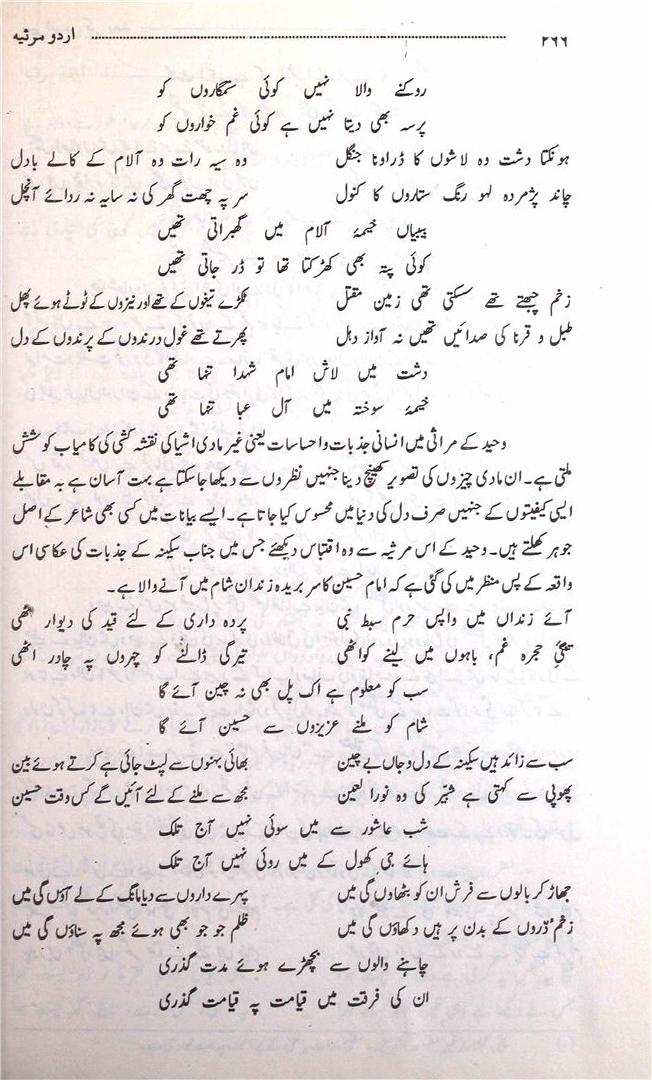 ۲۶۶ اردو مرثیہ
روکنے والا نہیں کوئی ستمگاروں کو
پرسہ بھی دیتا نہیں ہے کوئی غم خواروں کو
ہونکتا دشت وہ لاشوں کا ڈراونا جنگل وہ سیہ رات وہ آلام کے کالے بادل
چاند پژمردہ لہو رنگ ستاروں کا کنول سر پہ چھت گھر کی نہ سایہ نہ ردائے آنچل
بیبیاں خیمۂ آلام میں گھبراتی تھیں
کوئی پتہ بھی کھڑکتا تھا تو ڈر جاتی تھیں
زخم چبھتے تھے سسکتی تھی زمین مقتل ٹکڑے تیغوں کے تھے اور نیزوں کے ٹوٹے ہوئے پھل
طبل و قرنا کی صدائیں تھیں نہ آواز دہل پھرتے تھے غول درندوں کے پرندوں کے دل
دشت میں لاش امام شہدا تنہا تھی
خیمۂ سوختہ میں آل عبا تنہا تھی
وحید کے مراثی میں انسانی جذبات واحساسات یعنی غیر مادی اشیا کی نقشہ کشی کی کامیاب کوشش
ملتی ہے۔ ان مادی چیزوں کی تصویر کھینچ دینا جنہیں نظروں سے دیکھا جاسکتا ہے بہت آسان ہے بہ مقابلے
ایسی کیفیتوں کے جنہیں صرف دل کی دنیا میں محسوس کیا جاتا ہے۔ ایسے بیانات میں کسی بھی شاعر کے اصل
جوہر کھلتے ہیں۔ وحید کے اس مرثیہ سے وہ اقتباس دیکھئے جس میں جناب سکینہ کے جذبات کی عکاسی اس
واقعہ کے پس منظر میں کی گئی ہے کہ امام حسین کا سر بریدہ زندان شام میں آنے والا ہے۔
آئے زنداں میں واپس حرم سبط نبی پردہ داری کے لئے قید کی دیوار اٹھی
تنگیٔ حجرہ غم، باہوں میں لینے کو اٹھی تیرگی ڈالنے کو چہروں پہ چادر اٹھی
سب کو معلوم ہے اک پل بھی نہ چین آئے گا
شام کو ملنے عزیزوں سے حسین آئے گا
سب سے زائد ہیں سکینہ کے دل و جاں بے چین بھائی بہنوں سے لپٹ جاتی ہے کرتے ہوئے بین
پھوپی سے کہتی ہے شبیر کی وہ نورا لعین مجھ سے ملنے کے لئے آئیں گے کس وقت حسین
شب عاشور سے میں سوئی نہیں آج تلک
ہائے جی کھول کے میں روئی نہیں آج تلک
جھاڑ کر بالوں سے فرش ان کو بٹھاوں گی میں پہرے داروں سے دیا مانگ کے لے آؤں گی میں
زخم دُرّوں کے بدن پر ہیں دکھاؤں گی میں ظلم جو جو بھی ہوئے مجھ پہ سناؤں گی میں
چاہنے والوں سے بچھڑے ہوئے مدت گذری
ان کی فرقت میں قیامت پہ قیامت گذری